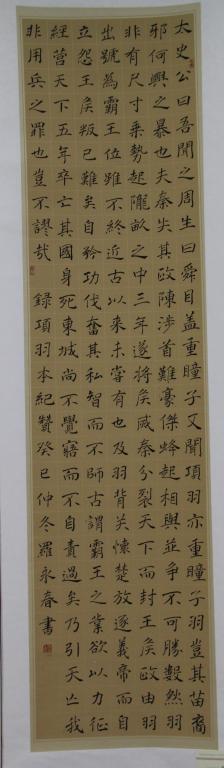 太史公曰吾聞之周生曰舜目蓋重瞳子又聞項羽亦重瞳子羽豈其苗裔
邪何興之暴也夫秦失其政陳涉首難豪傑蜂起相與並爭不可勝數然羽
非有尺寸乘勢起隴畝之中三年遂將矦滅秦分裂天下而封王矦政由羽
出號為霸王位雖不終近古以來未嘗有也及羽背关懷楚放逐義帝而自
立怨王矦叛已難矣自矜功伐奮其私智而不師古謂霸王之業欲以力征
經營天下五年卒亡其國身死東城尚不覺寤而不自責過矣乃引天亡我
非用兵之罪也豈不謬哉 錄項羽本紀贊癸巳仲冬羅永春書